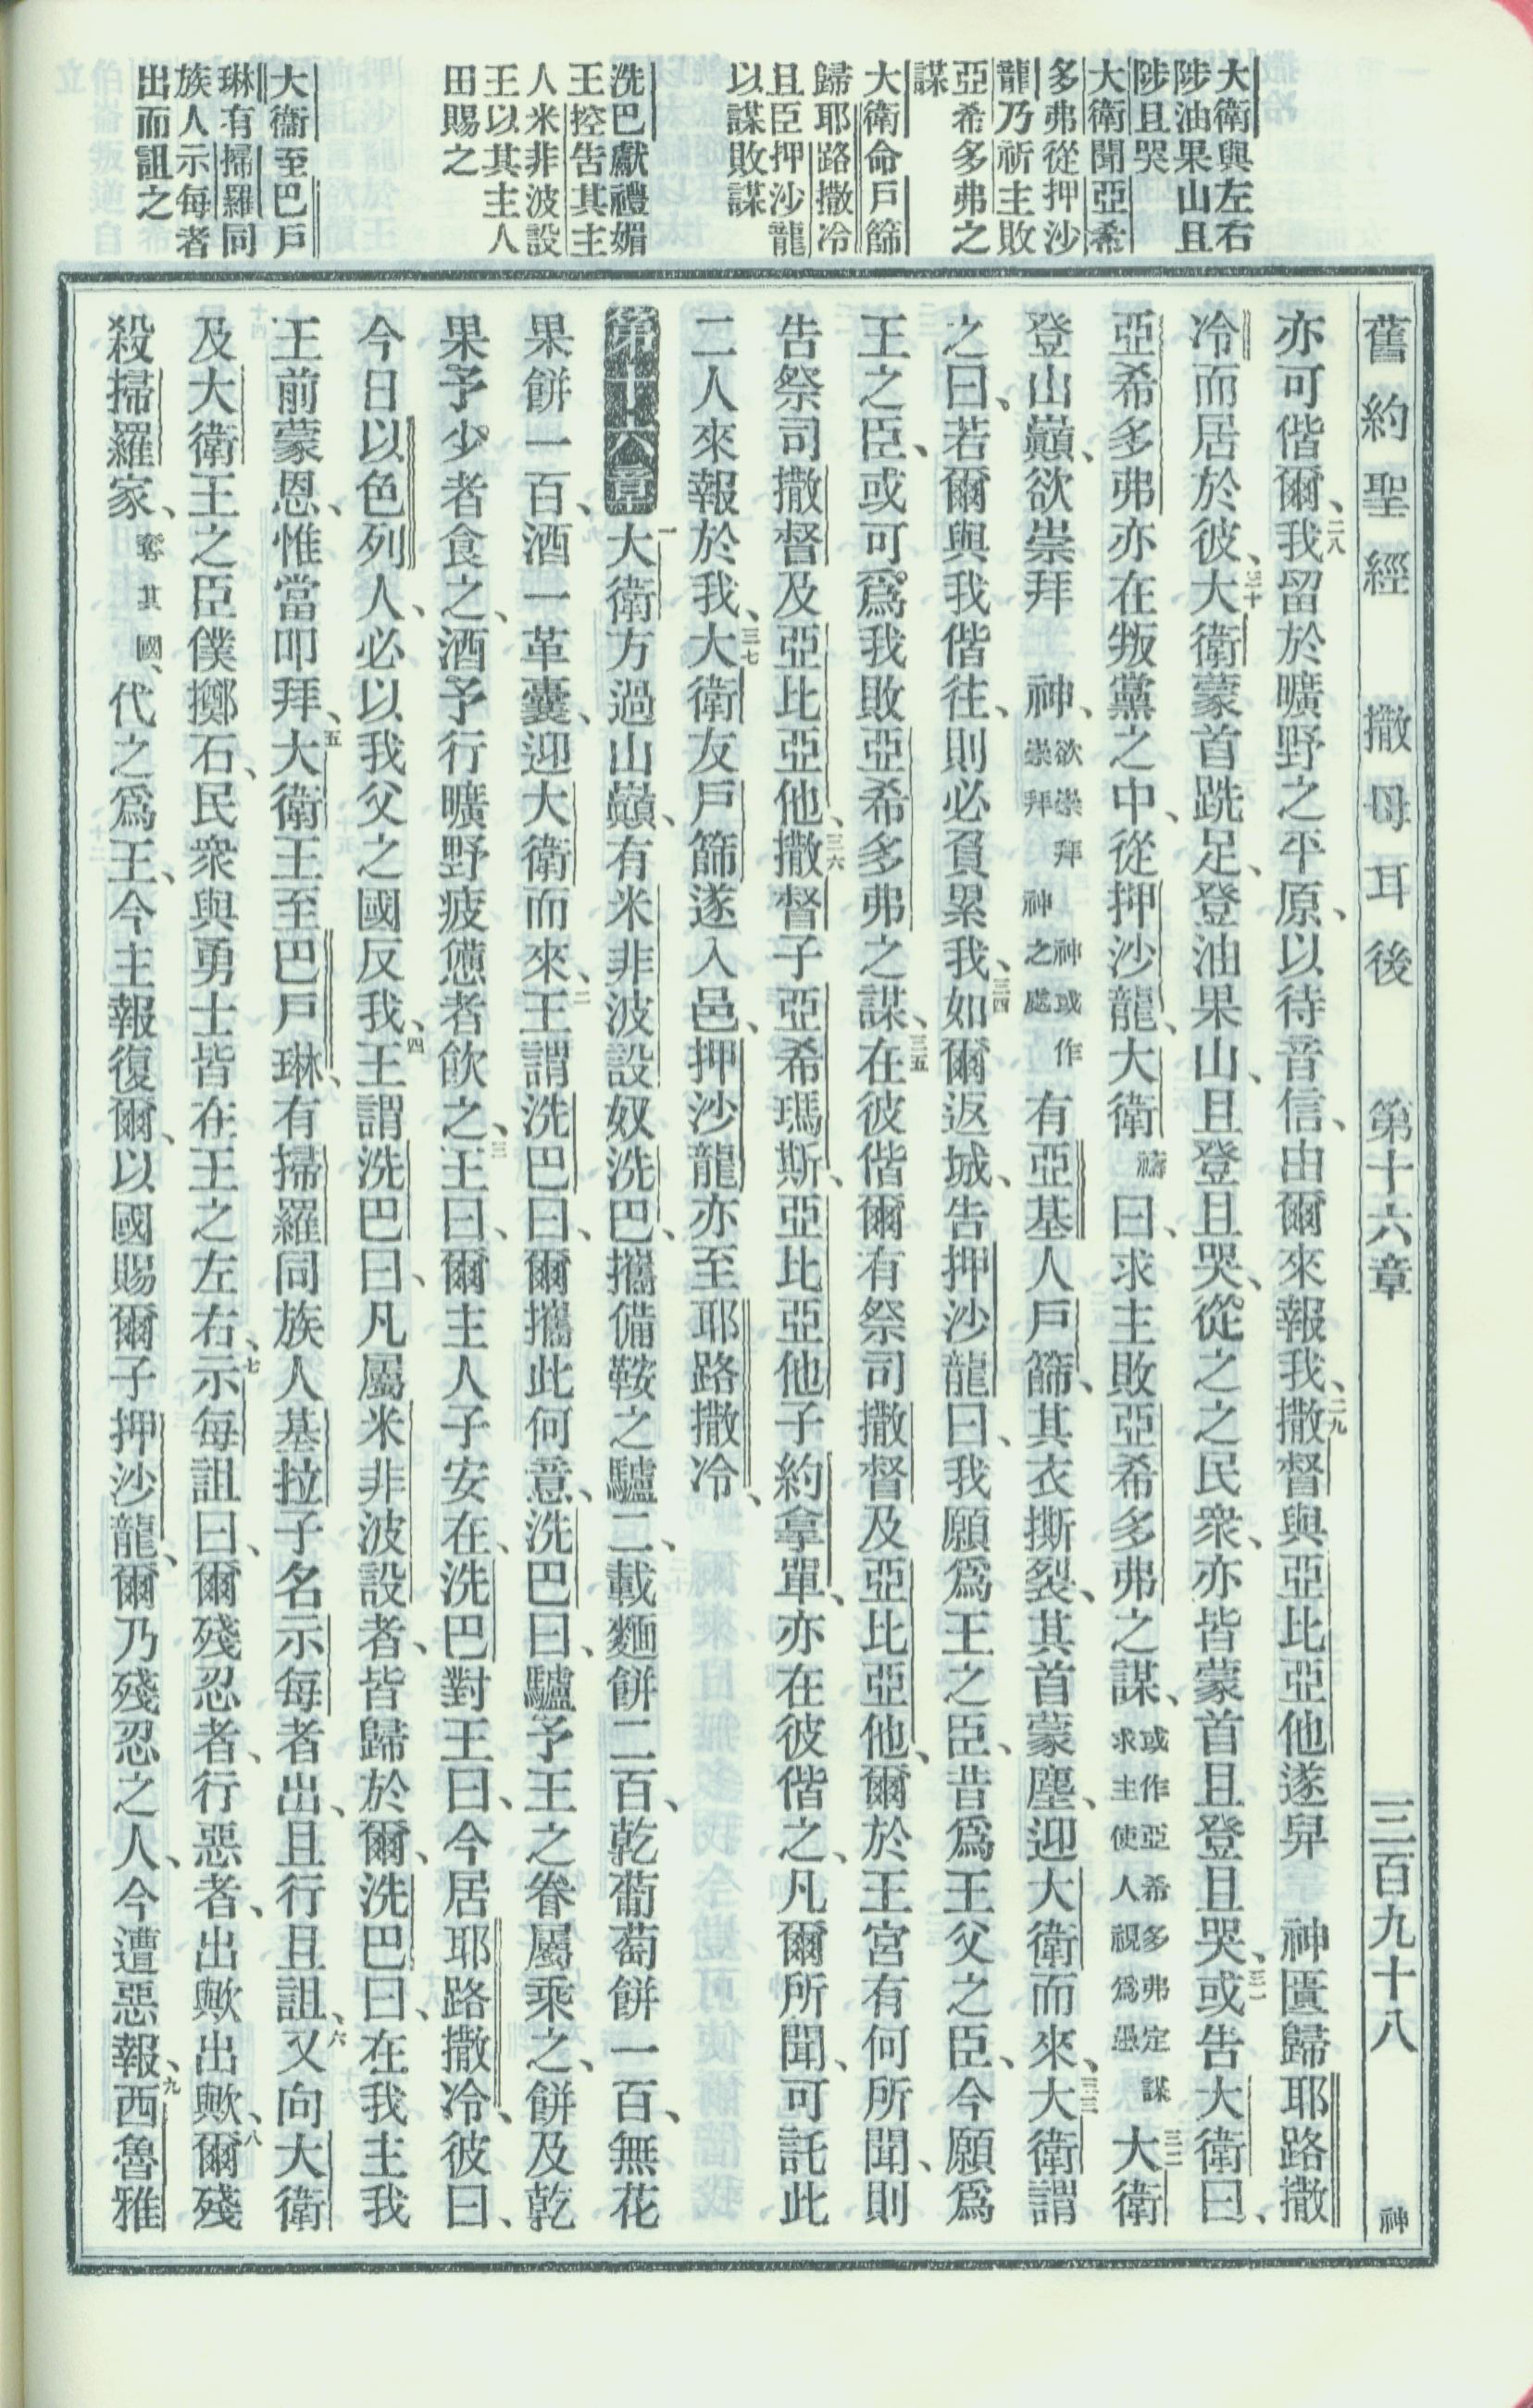 舊約聖經　撒母耳後　第十六章　三百九十八　神
大衛與左右
陟油果山且
陟且哭
大衛聞亞希
多弗從押沙
龍乃祈主敗
亞希多弗之
謀
大衛命戶篩
歸耶路撒冷
且臣押沙龍
以謀敗謀
洗巴獻禮媚
王控告其主
人米非波設
王以其主人
田賜之
大衞至巴戶
琳有掃羅同
族人示每者
出而詛之
亦可偕爾、二八我留於曠野之平原、以待音信、由爾來報我、二九撒督與亞比亞他遂舁　神匱歸耶路撒
冷而居於彼、三十大衛蒙首跣足、登油果山、且登且哭、從之之民衆、亦皆蒙首且登且哭、三一或告大衛曰、
亞希多弗亦在叛黨之中、從押沙龍、大衛禱曰、求主敗亞希多弗之謀、或作亞希多弗定謀求主使人視爲愚三二大衛
登山巔、欲崇拜　神、欲崇拜神或作崇拜神之處有亞基人戶篩、其衣撕裂、其首蒙塵、迎大衛而來、三三大衛謂
之曰、若爾與我偕往、則必負累我、三四如爾返城、告押沙龍曰、我願爲王之臣、昔爲王父之臣、今願爲
王之臣、或可爲我敗亞希多弗之謀、三五在彼偕爾有祭司撒督及亞比亞他、爾於王宮有何所聞、則
告祭司撒督及亞比亞他、三六撒督子亞希瑪斯、亞比亞他子約拿單、亦在彼偕之、凡爾所聞、可託此
二人來報於我、三七大衛友戶篩遂入邑、押沙龍亦至耶路撒冷、
第十六章　一大衛方過山巔、有米非波設奴洗巴、攜備鞍之驢二、載麵餅二百、乾葡萄餅一百、無花
果餅一百、酒一革囊、迎大衛而來、二王謂洗巴曰、爾攜此何意、洗巴曰、驢予王之眷屬乘之、餅及乾
果予少者食之、酒予行曠野疲憊者飲之、三王曰、爾主人子安在、洗巴對王曰、今居耶路撒冷、彼曰、
今日以色列人、必以我父之國反我、四王謂洗巴曰、凡屬米非波設者、皆歸於爾、洗巴曰、在我主我
王前蒙恩、惟當叩拜、五大衛王至巴戶琳、有掃羅同族人基拉子名示每者出、且行且詛、六又向大衛
及大衛王之臣僕擲石、民衆與勇士皆在王之左右、七示每詛曰、爾殘忍者、行惡者、出歟出歟、八爾殘
殺掃羅家、奪其國、代之爲王、今主報復爾、以國賜爾子押沙龍、爾乃殘忍之人、今遭惡報、九西魯雅